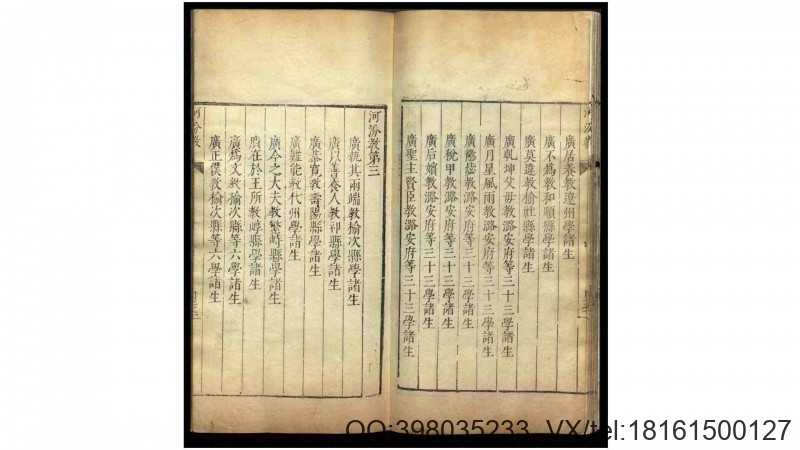 廣居養教遼州學諸生
廣不為教和順縣學諸生
廣莫違教榆社縣學諸生
廣乾坤父母教潞安府等三十三學諸生
廣月星風雨教潞安府等三十三學諸生
教潞安府等三十三學諸生
廣稅甲教潞安府等三十三學諸生
廣后嬪教潞安府等三十三學諸生
廣聖主賢臣教潞安府等三十三學諸生
河汾教第三
廣執其兩端教榆次縣學諸生
廣以善養人教祁縣學諸生
廣恭寬教壽陽縣學諸生
廣難能教代州學諸生
廣今之大夫教繁峙縣學諸生
廣在於王所教崞縣學諸生
廣為文教榆次縣等六學諸生
廣正僕教榆次縣等六學諸生
河汾教
QQ:398035233 VX/tel:18161500127